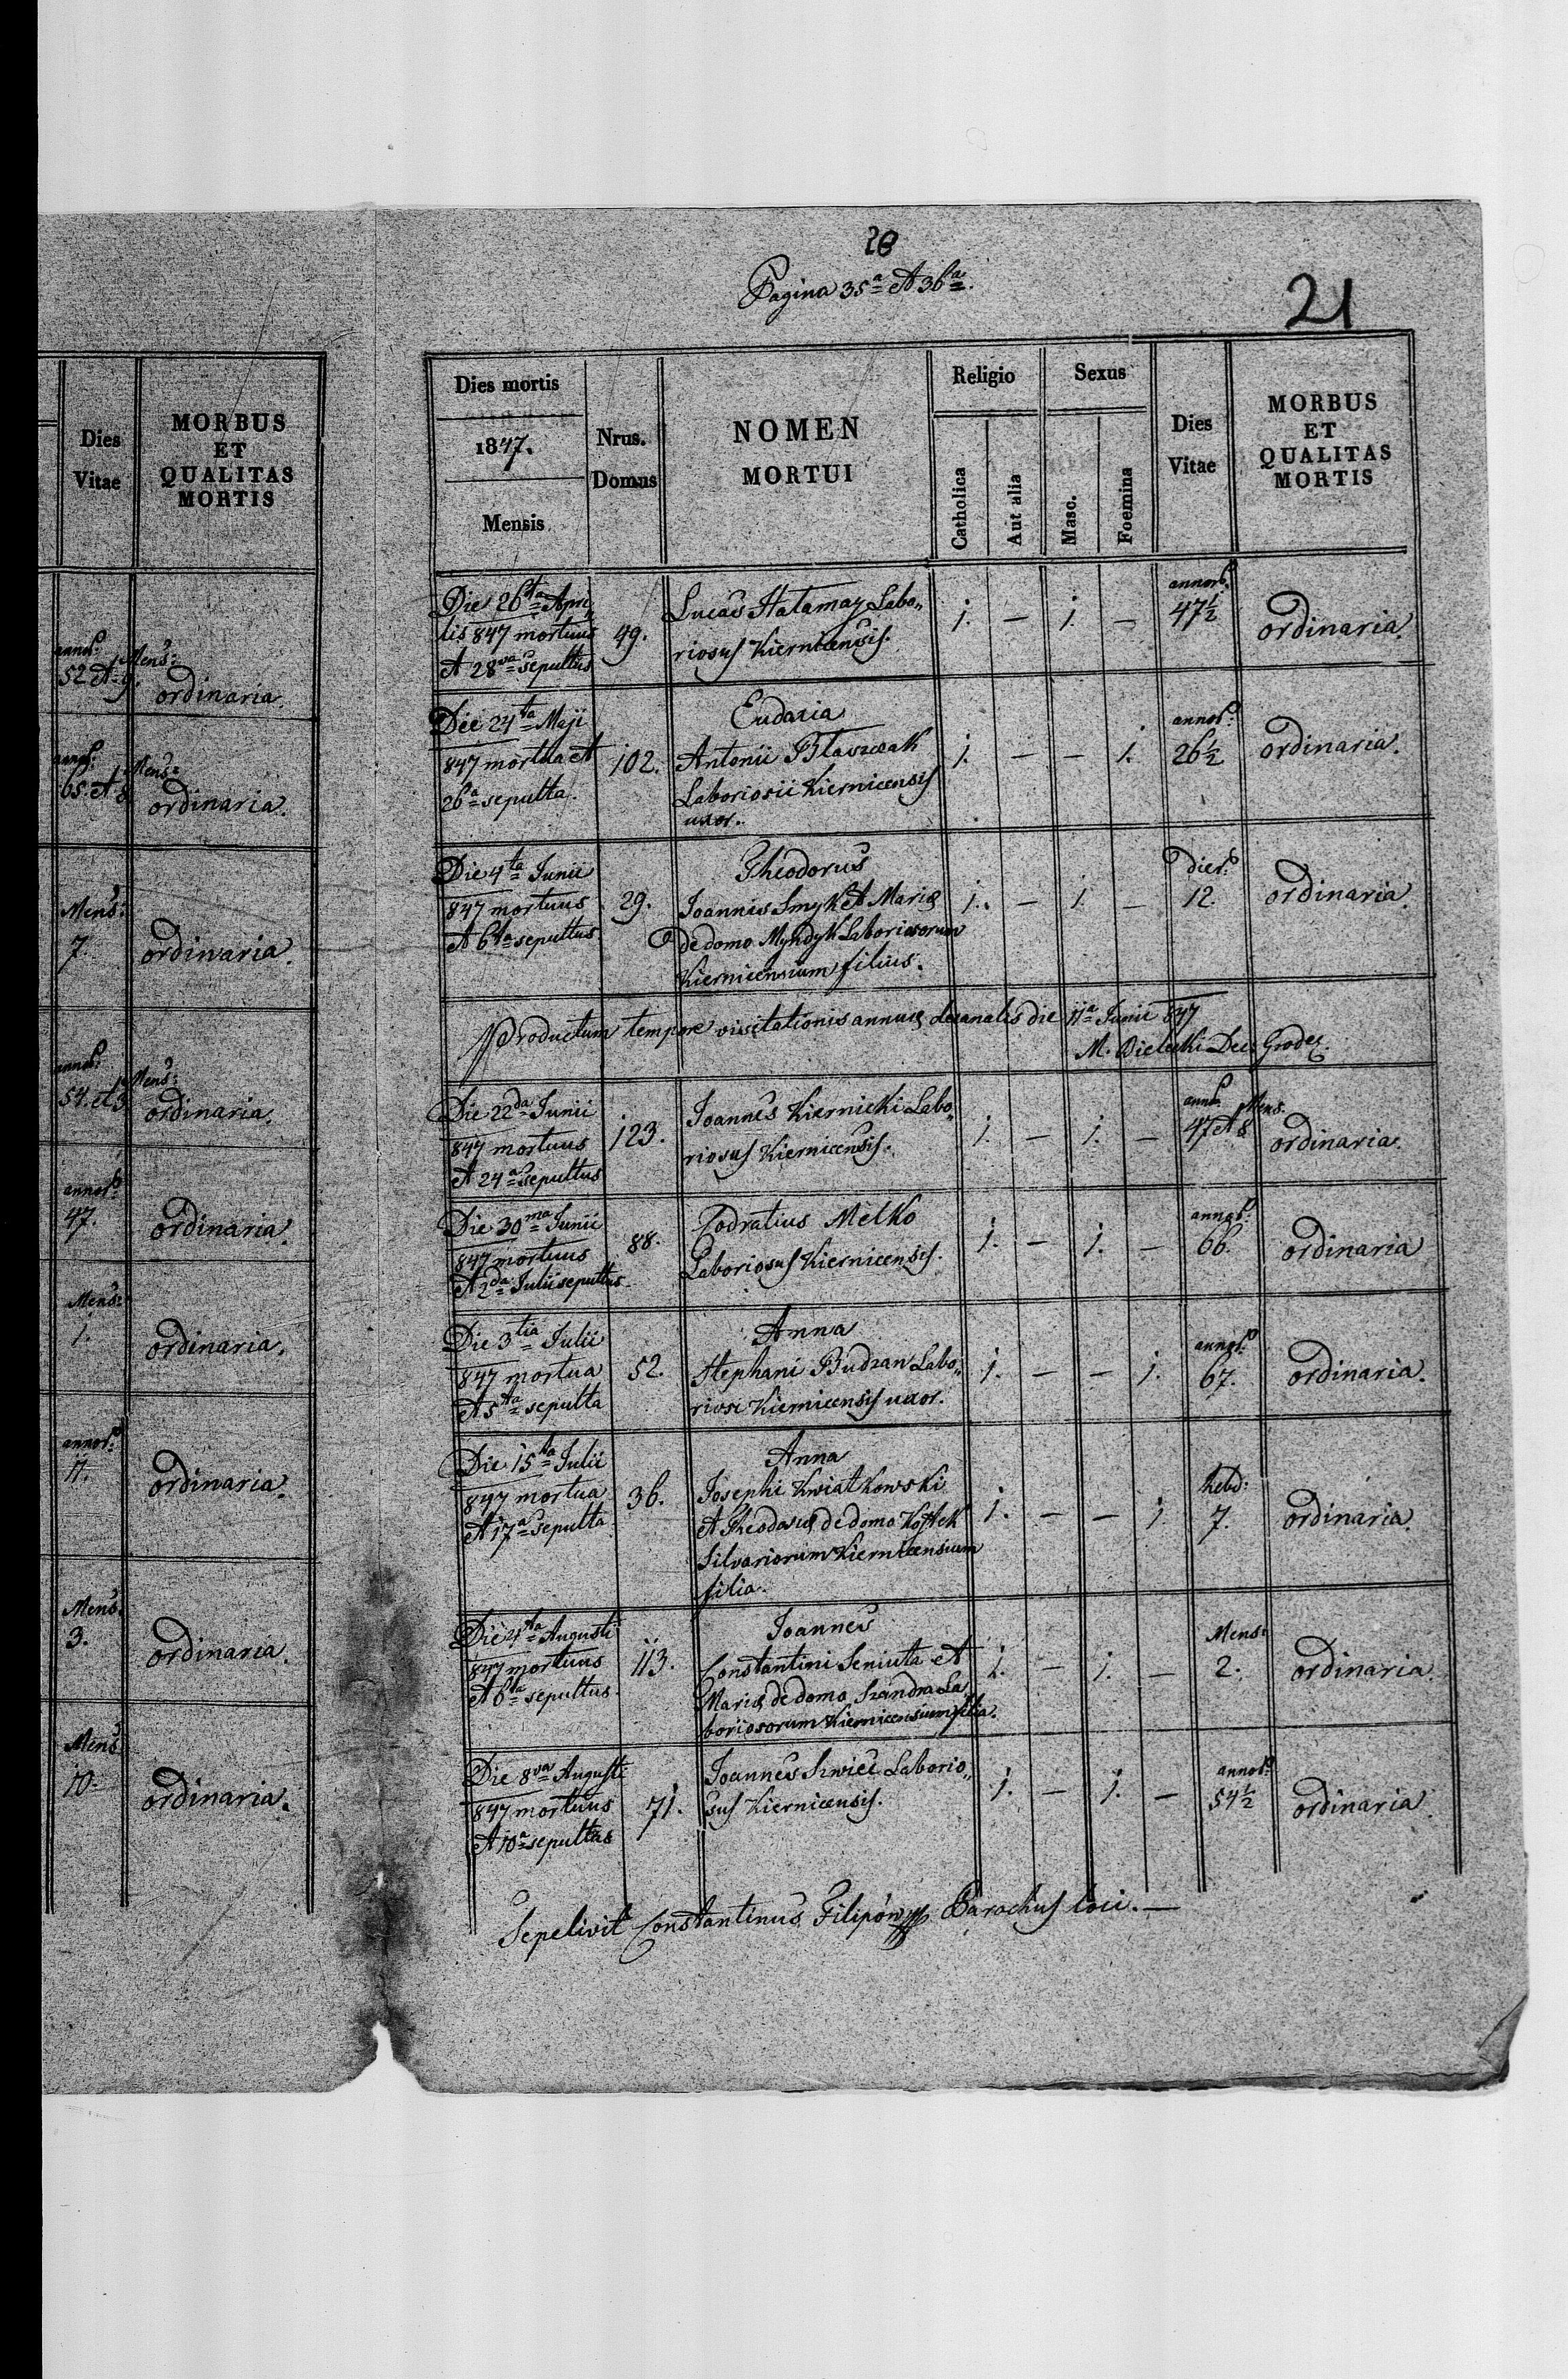 28
Pagina 35ª et 36ª.
21
Dies
Vitae
MORBUS
ET
QUALITAS
MORTIS
annor:
52 et 9. Mens:
ordinaria.
annor:
65. et 8 Mens:
ordinaria.
Mens:
7.
ordinaria.
annor:
54. et 3 Mens:
ordinaria.
annor:
47.
ordinaria.
Mens:
1.
ordinaria.
annor:
11.
ordinaria.
Mens:
3.
ordinaria.
Mens:
10.
ordinaria.
Dies mortis
1847.
Mensis
Nrus.
Domus
NOMEN
MORTUI
Religio
Catholica
Aut alia
Sexus
Masc.
Foemina
Dies
Vitae
MORBUS
ET
QUALITAS
MORTIS
Die 26ta Apri„
lis 847 mortuus
et 28va sepultus
49.
Lucas Hatamay Labo„
riosus Kiernicensis.
1. — 1. —
annor:
47½
ordinaria.
Die 24ta Maji
847 mortua et
26ª sepulta.
102.
Eudaxia
Antonii Blaszczak
Laboriosii Kiernicensis
uxor.
1. — — 1.
annor:
26½
ordinaria.
Die 4ta Junii
847 mortuus
et 6ta sepultus
29.
Theodorus
Joannis Smyk et Mariæ
de domo Myndyk Laboriosorum
Kiernicensium filius.
1. — 1. —
dier:
12.
ordinaria.
Productum tempore visitationis annuæ decanalis die 11ª Junii 847
M. Bielecki Dec: Grodec.
Die 22da Junii
847 mortuus
et 24ª sepultus
123.
Joannes Kiernicki Labo„
riosus Kiernicensis.
1. — 1. —
annor: Mens.
47 et 8
ordinaria.
Die 30ma Junii
847 mortuus
et 2da Julii sepultus.
88.
Codratius Melko
Laboriosus Kiernicensis.
1. — 1. —
annor:
66.
ordinaria
Die 3tia Julii
847 mortua
et 5ta sepulta
52.
Anna
Stephani Budzan Labo„
riosi Kiernicensis uxor.
1. — — 1.
annor:
67.
ordinaria.
Die 15ta Julii
847 mortua
et 17ª sepulta
36.
Anna
Josephi Kwiatkowski
et Theodosiæ de domo
Silvariorum Kiernicensium
filia.
1. — — 1.
hebd:
7.
ordinaria.
Die 4ta Augusti
847 mortuus
et 6ta sepultus.
113.
Joannes
Constantini Seniuta et
Mariæ de domo Szandra La„
boriosorum Kiernicensium filia.
1. — 1. —
Mens:
2.
ordinaria.
Die 8va Augusti
847 mortuus
et 10ª sepultus
71.
Joannes Szwiec Laborio„
sus Kiernicensis.
1. — 1. —
annor:
54½
ordinaria.
Sepelivit Constantinus Filipów Parochus loci. —